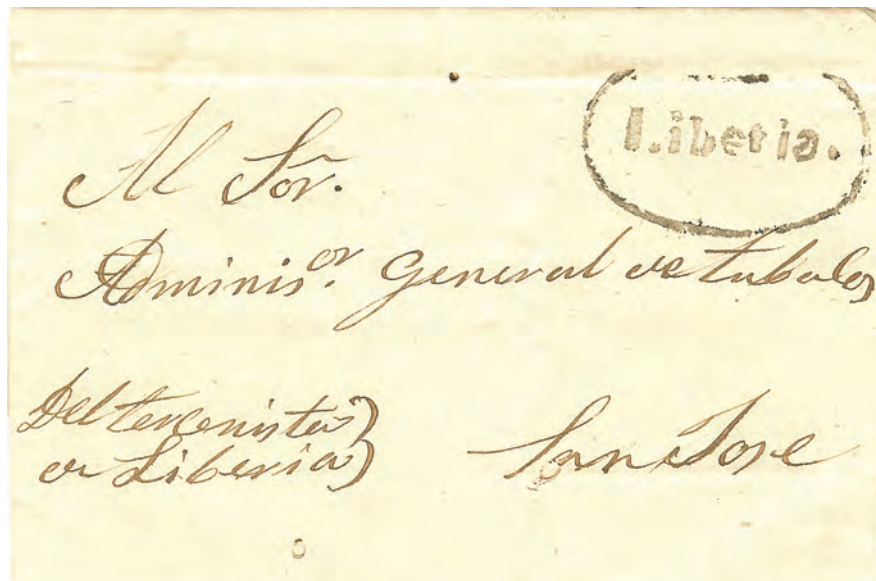 Liberia.
Al Sor.
Adminisor. General de tabacos
Del tercenista
de Liberia
San Jose